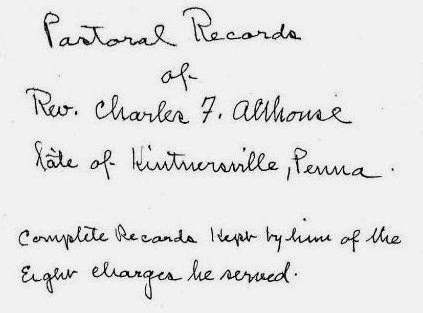 Pastoral Records
of
Rev. Charles F. Althouse
late of Kintnersville, Penna.
Complete Records Kept by him of the
Eight charges he served.